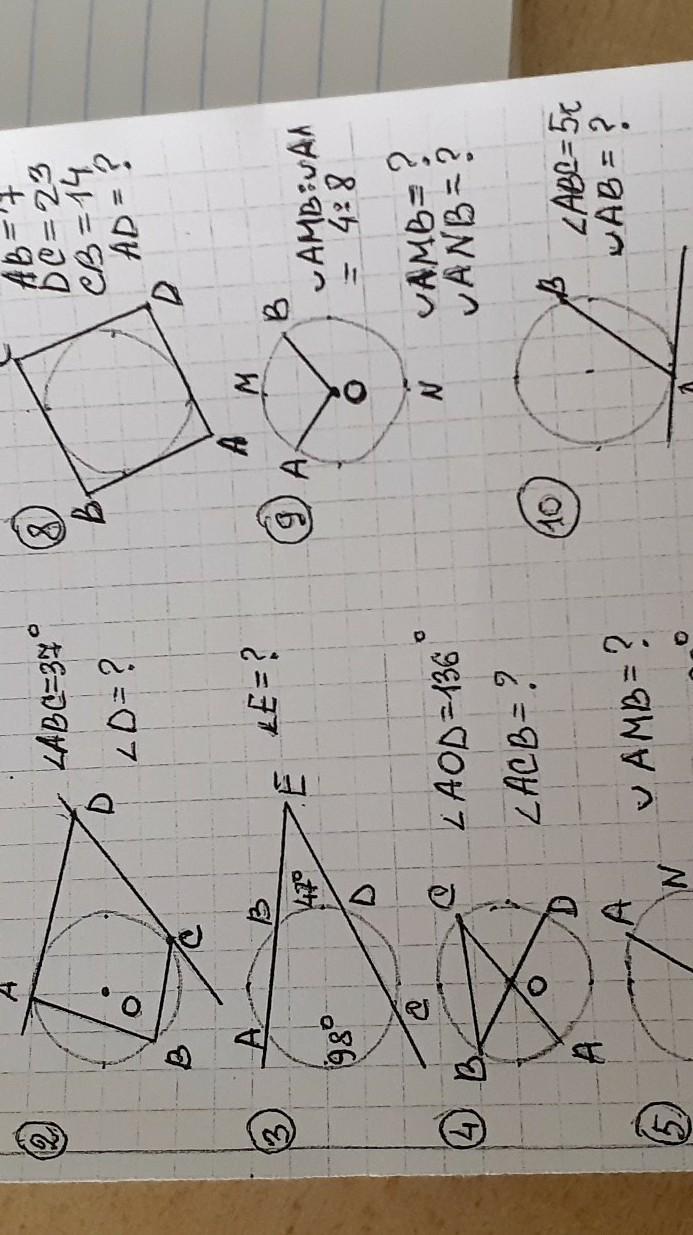 2
A
B
C
D
O
∠ABC=37°
∠D=?
3
A
B
C
D
E
98°
47°
∠E=?
4
A
B
C
D
O
∠AOD=136°
∠ACB=?
5
A
N
◡AMB=?
8
B
A
D
AB=7
DC=23
CB=14
AD=?
9
A
M
B
O
N
◡AMB:◡
=4:8
◡AMB=?
◡ANB=?
10
B
◡AB=?